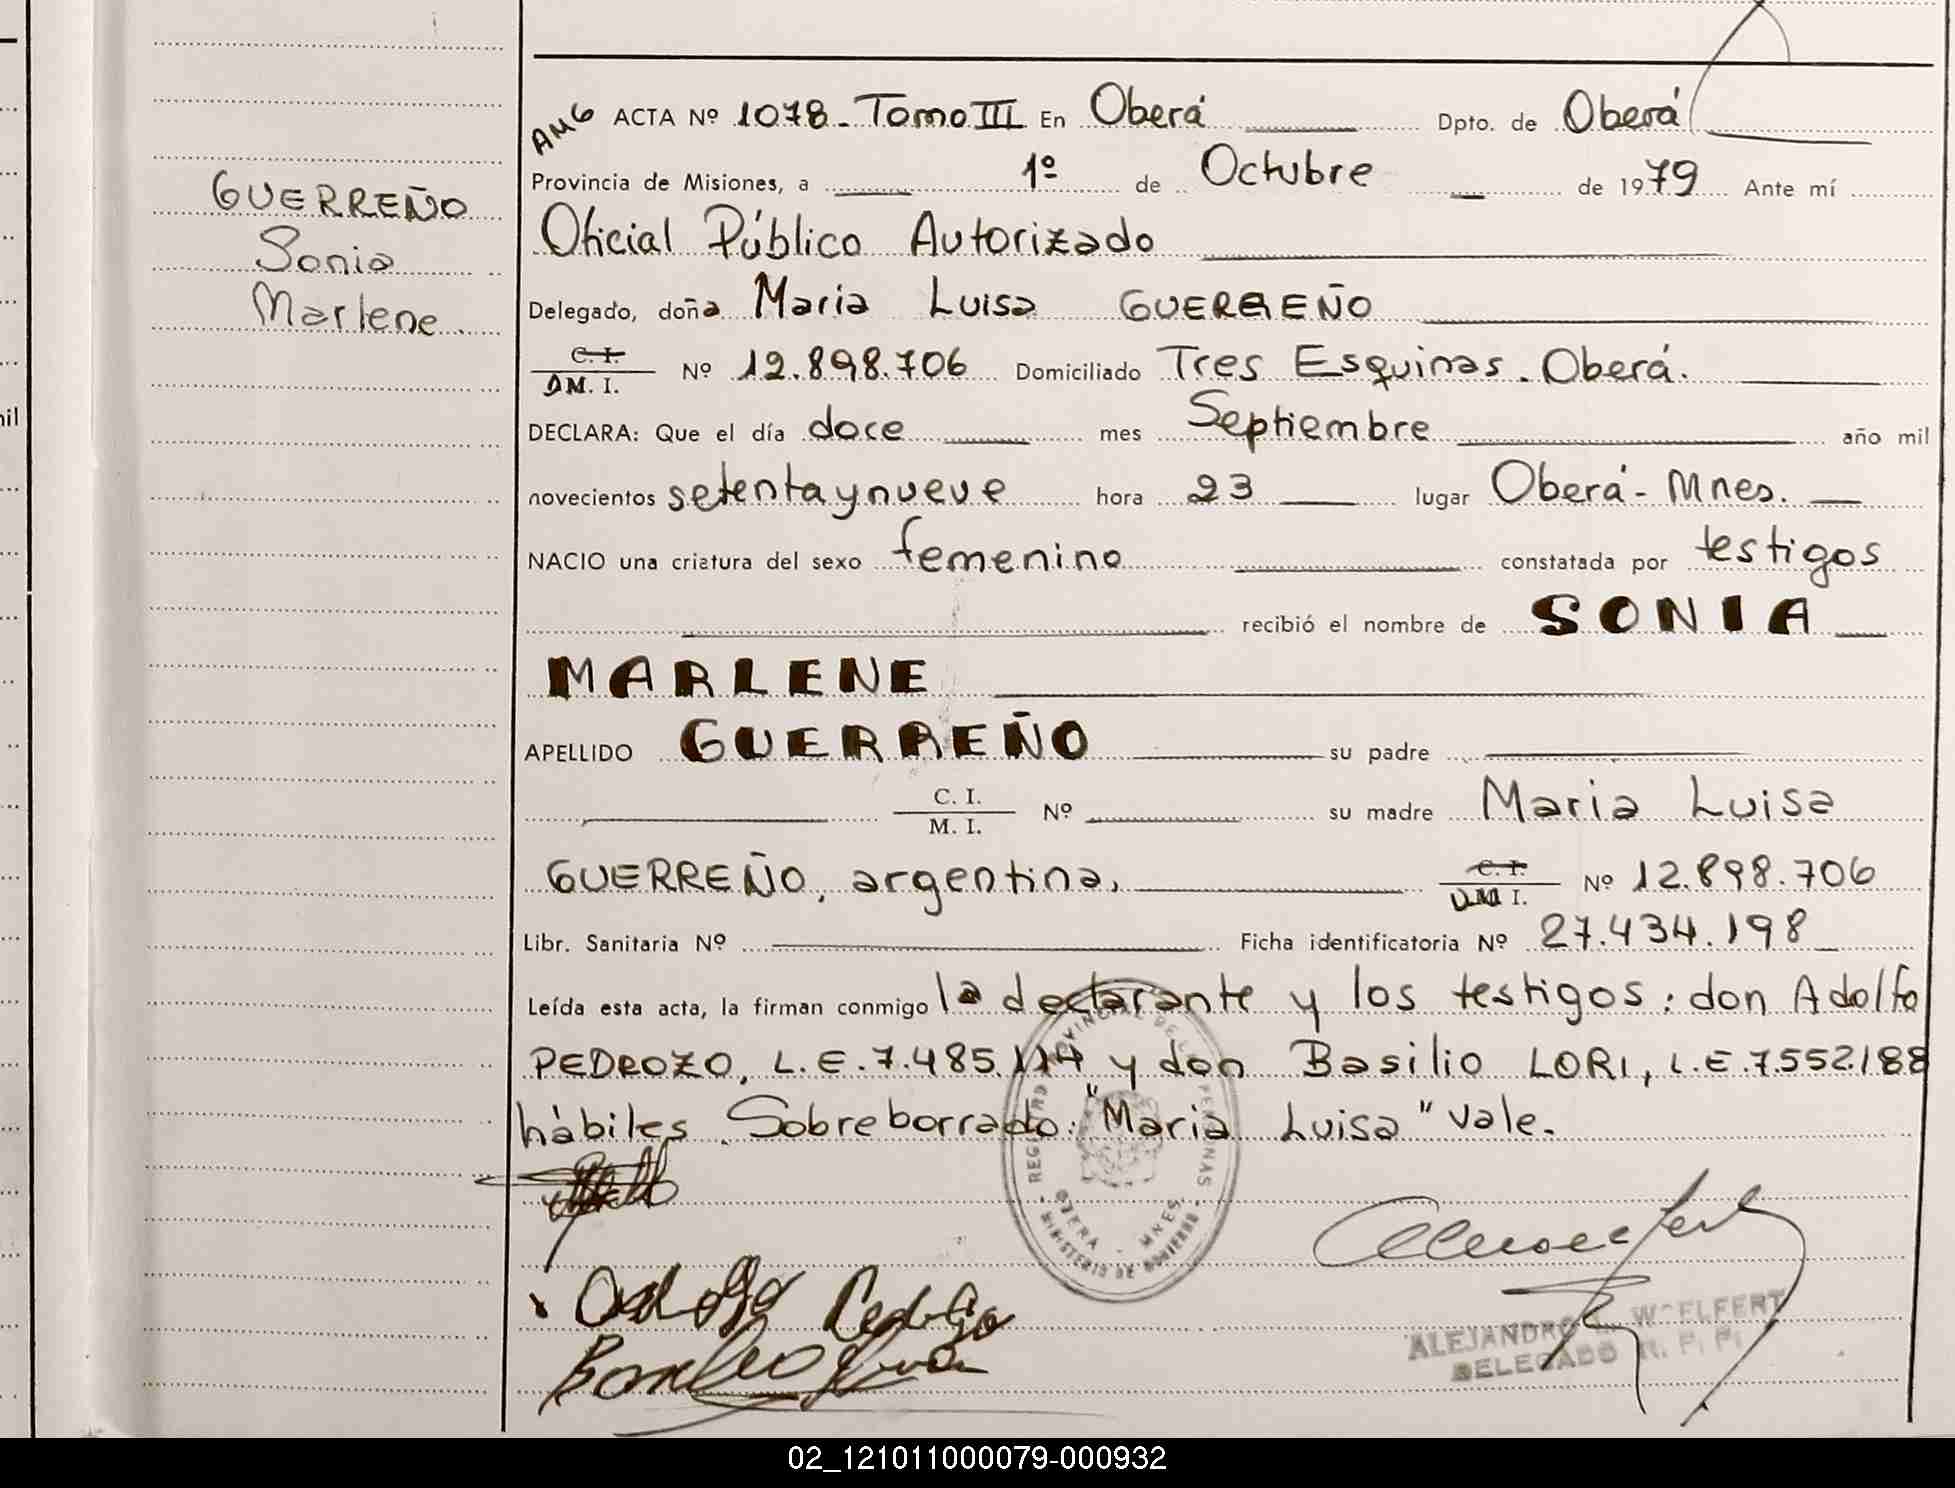 GUERREÑO
Sonia
Marlene
AMG ACTA Nº 1078 - Tomo III En Oberá Dpto. de Oberá
Provincia de Misiones, a 1º de Octubre de 1979 Ante mí
Oficial Público Autorizado
Delegado, doña Maria Luisa GUERREÑO
C. I.
DM. I. Nº 12.898.706 Domiciliado Tres Esquinas. Oberá.
DECLARA: Que el día doce mes Septiembre año mil
novecientos setenta y nueve hora 23 lugar Oberá - Mnes.
NACIO una criatura del sexo femenino constatada por testigos
recibió el nombre de SONIA
MARLENE
APELLIDO GUERREÑO su padre
C. I.
M. I. Nº su madre Maria Luisa
GUERREÑO, argentina,
C. I.
DM I. Nº 12.898.706
Libr. Sanitaria Nº Ficha identificatoria Nº 27.434.198
Leída esta acta, la firman conmigo la declarante y los testigos: don Adolfo
PEDROZO, L.E. 7.485.114 y don Basilio LORI, L.E. 7.552.188
hàbiles. Sobreborrado: "Maria Luisa" vale.
REGISTRO PROVINCIAL DE LAS PERSONAS
OBERA - MNES.
MINISTERIO DE GOBIERNO
ALEJANDRO WOELFERT
DELEGADO R. P. P.
02_121011000079-000932
nil